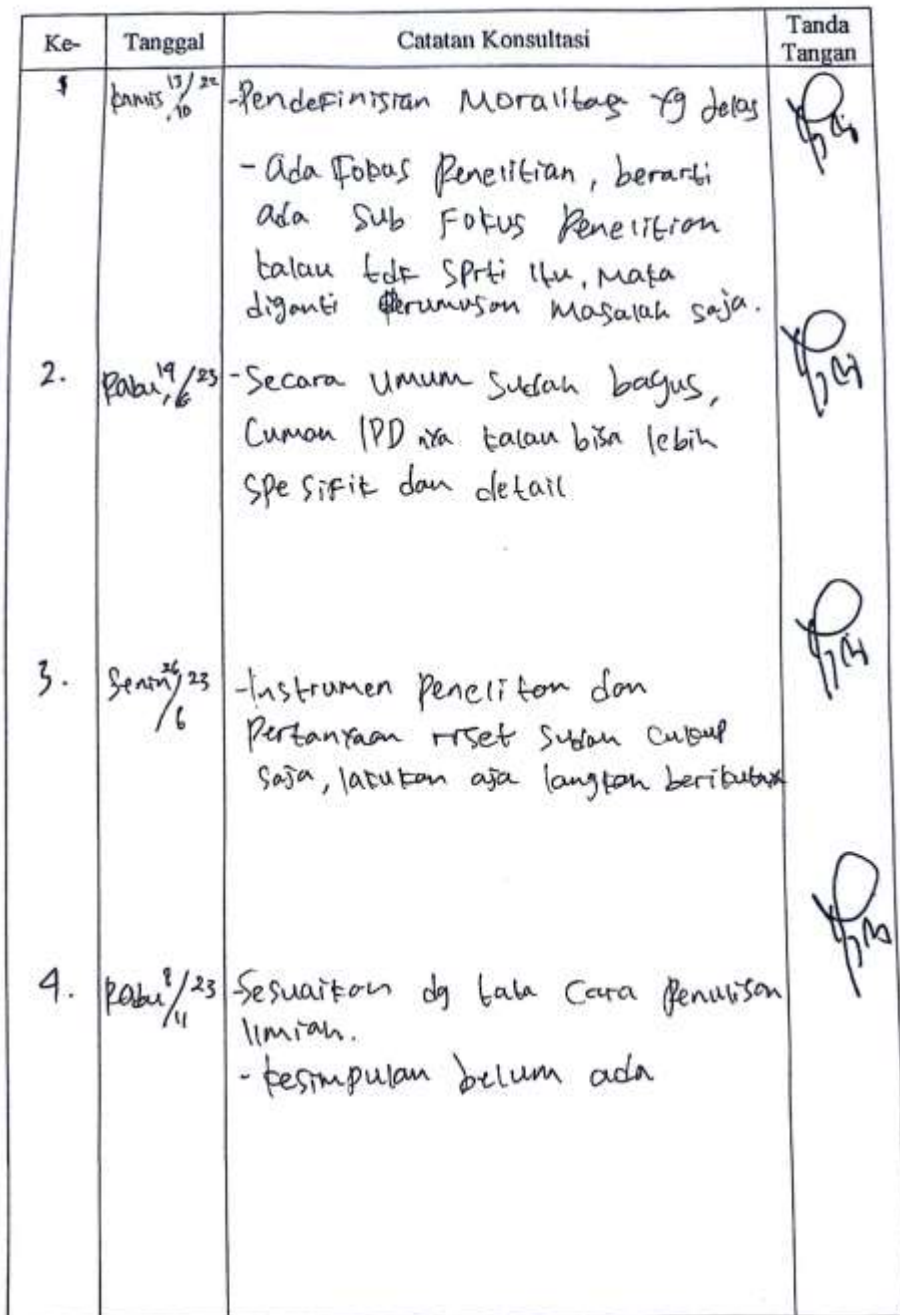 Ke- Tanggal Catatan Konsultasi Tanda Tangan
1 Kamis 13/10 22 - Pendefinisian Moralitas yg jelas
- Ada Fokus Penelitian, berarti
ada Sub Fokus Penelitian
kalau tdk sprti itu, maka
diganti Perumusan Masalah saja.
2. Rabu, 14/6 23 - Secara Umum Sudah bagus,
Cuman IPD nya kalau bisa lebih
spesifik dan detail
3. Senin 26/6 23 - Instrumen Penelitian dan
Pertanyaan riset sudah cukup
saja, lakukan aja langkah berikutnya
4. Rabu 8/11 23 - Sesuaikan dg tata Cara Penulisan
Ilmiah.
- Kesimpulan belum ada